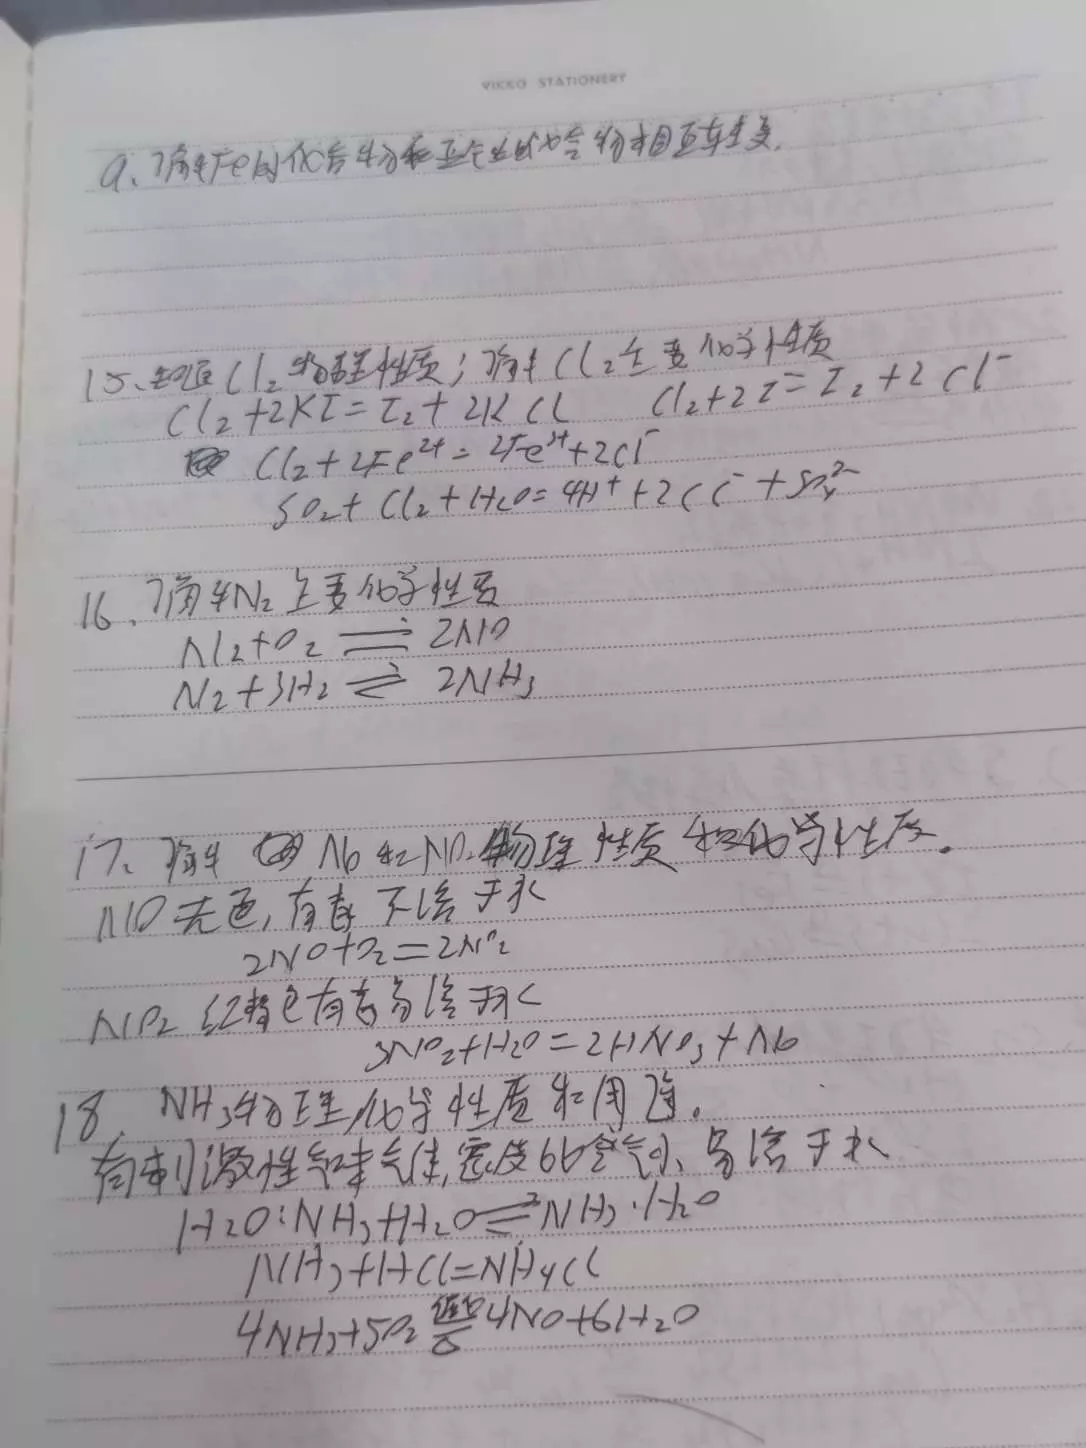 VIKKO STATIONERY
9、了解Fe的化合物和亚铁化合物相互转变.
15、知道Cl₂物理性质;了解Cl₂主要化学性质
Cl₂+2KI=I₂+2KCl Cl₂+2I⁻=I₂+2Cl⁻
Cl₂+2Fe²⁺=2Fe³⁺+2Cl⁻
SO₂+Cl₂+H₂O=4H⁺+2Cl⁻+SO₄²⁻
16、了解N₂主要化学性质
N₂+O₂⇌2NO
N₂+3H₂⇌2NH₃
17、了解NO和NO₂物理性质和化学性质.
NO无色,有毒不溶于水
2NO+O₂=2NO₂
NO₂红棕色有毒易溶于水
3NO₂+H₂O=2HNO₃+NO
18、NH₃物理,化学性质和用途.
有刺激性气味气体,密度比空气小、易溶于水
H₂O:NH₃+H₂O⇌NH₃·H₂O
NH₃+HCl=NH₄Cl
4NH₃+5O₂ 催化剂 △ 4NO+6H₂O